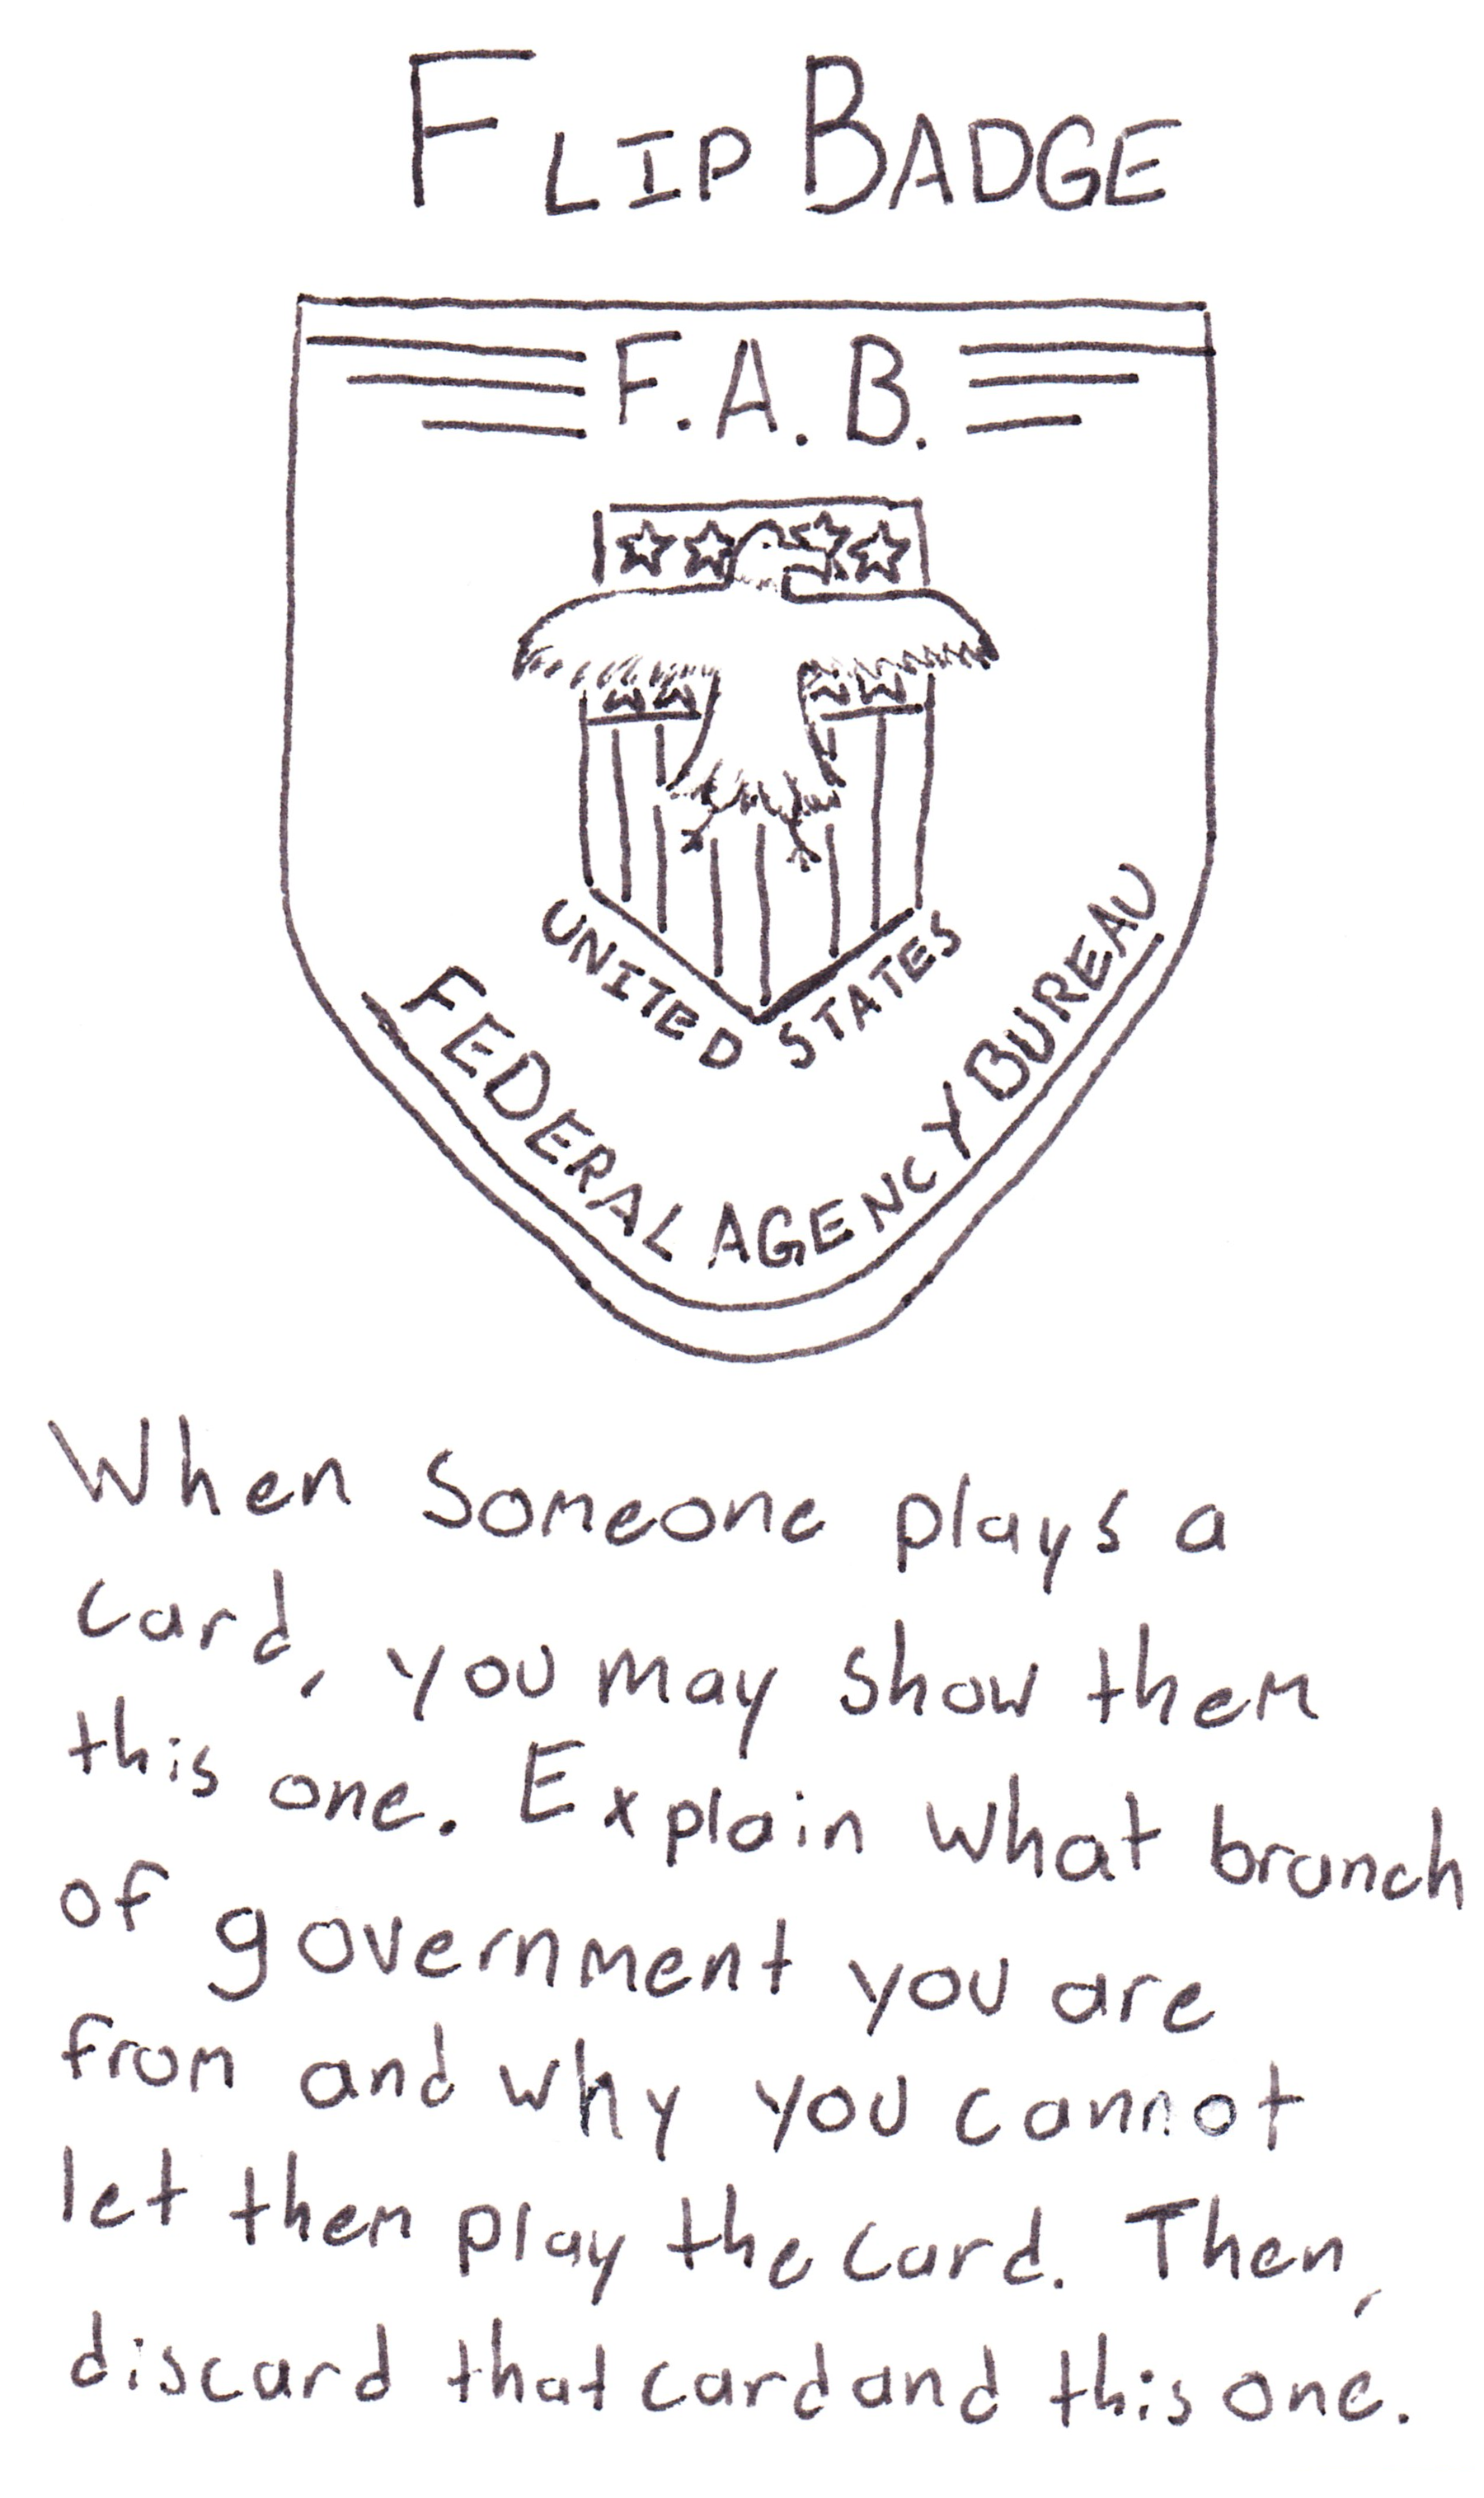 FLIP BADGE
F.A.B.
UNITED STATES
FEDERAL AGENCY BUREAU
When someone plays a
card, you may show them
this one. Explain what branch
of government you are
from and why you cannot
let them play the card. Then,
discard that card and this one.